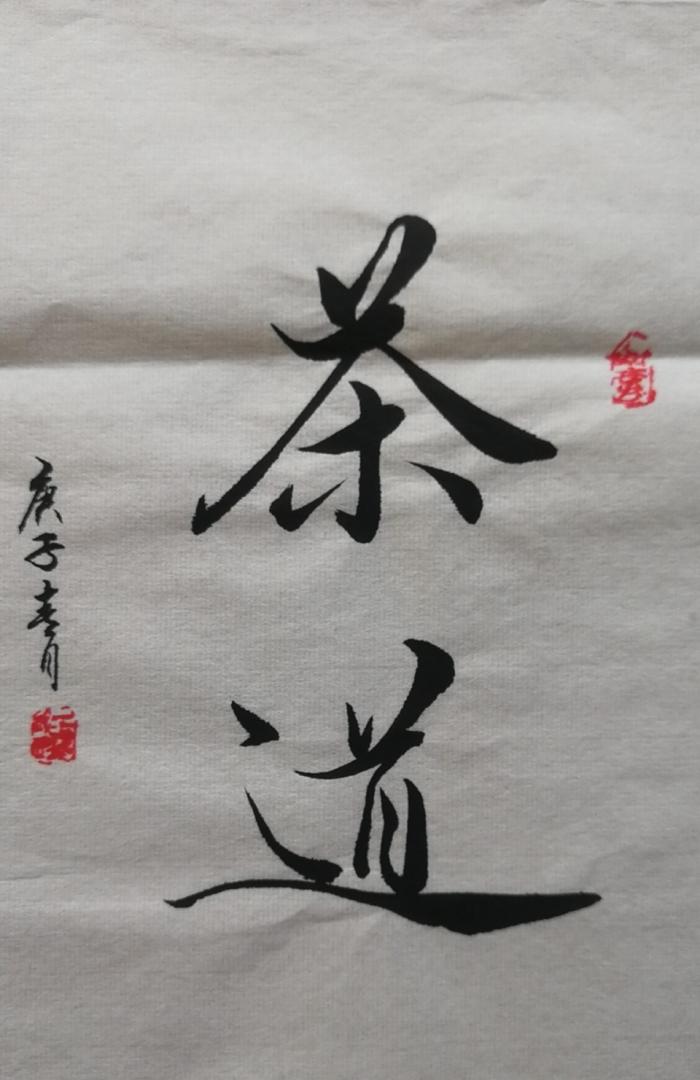 茶道
庚子春月